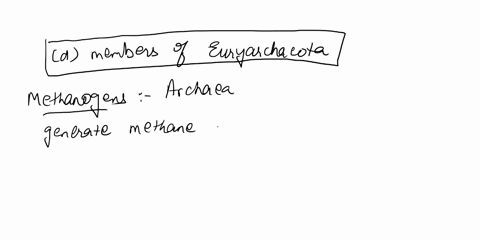 (d) members of Euryarchacota
Methanogens :- Archaea
generate methane